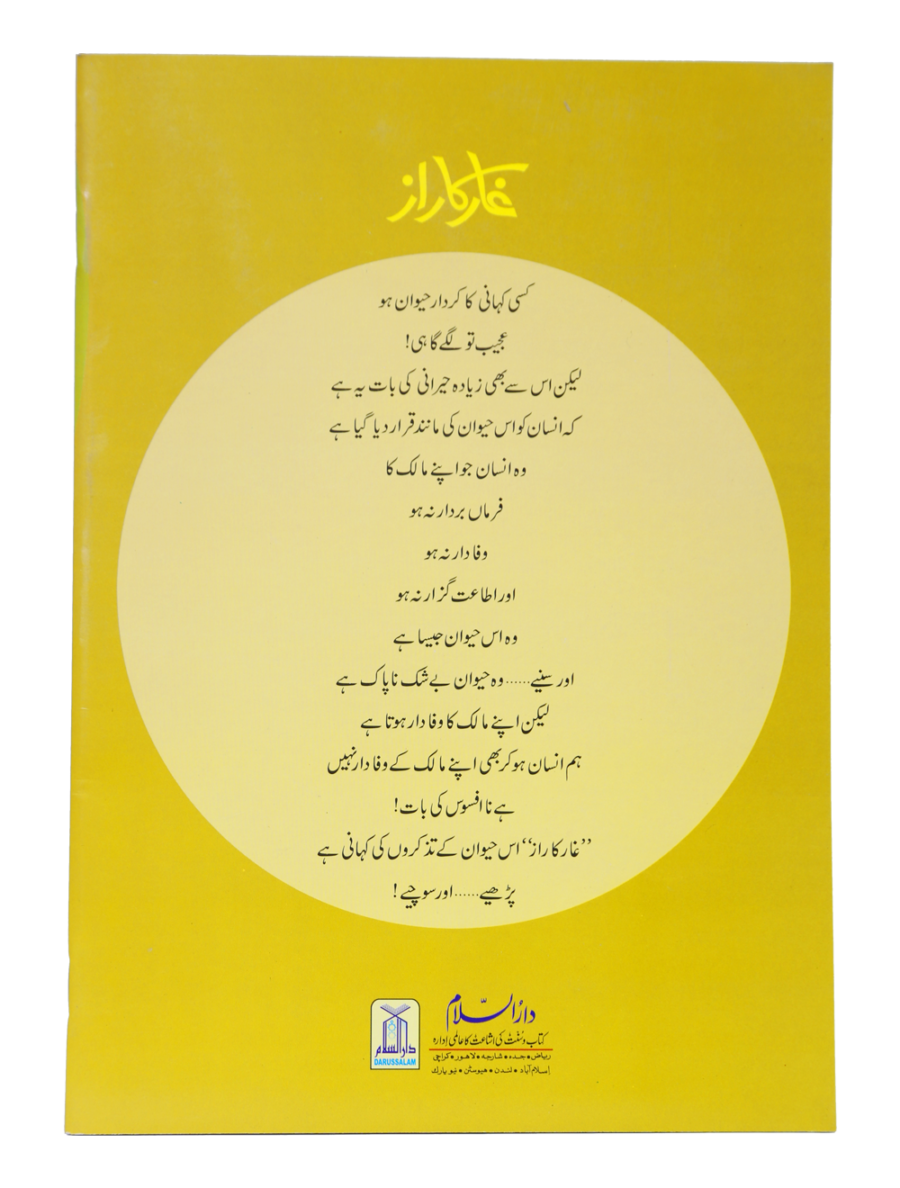 غار کا راز
کسی کہانی کا کردار حیوان ہو
عجیب تو لگے گا ہی!
لیکن اس سے بھی زیادہ حیرانی کی بات یہ ہے
کہ انسان کو اس حیوان کی مانند قرار دیا گیا ہے
وہ انسان جو اپنے مالک کا
فرماں بردار نہ ہو
وفادار نہ ہو
اور اطاعت گزار نہ ہو
وہ اس حیوان جیسا ہے
اور سنیے...... وہ حیوان بے شک ناپاک ہے
لیکن اپنے مالک کا وفادار ہوتا ہے
ہم انسان ہو کر بھی اپنے مالک کے وفادار نہیں
ہے نا افسوس کی بات!
’’غار کا راز‘‘ اس حیوان کے تذکروں کی کہانی ہے
پڑھیے...... اور سوچیے!
دارُالسّلام
کتاب و سُنّت کی اشاعت کا عالمی اِدارہ
ریاض • جدہ • شارجہ • لاہور • کراچی
اِسلام آباد • لندن • ہیوسٹن • نیو یارک
دارالسلام
DARUSSALAM